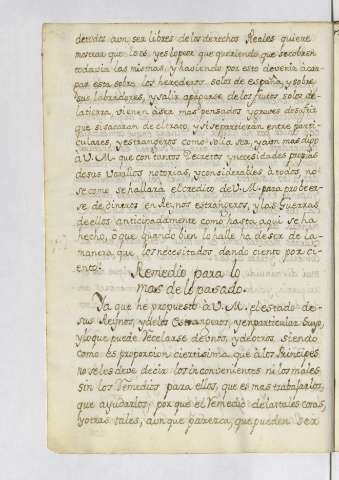 de todos aun ser libres de los derechos Reales quiere
mostrar que lo es, y es lo peor que queriendo que se cobren
todavia las mismas, y haciendo por esto devenir à car-
gar esta sobre los herederos solos de españa, y sobre
sus labradores, y salir à pagarse de los frutos solos de
la tierra vienen à ser mas pesados, y graves de suffrir
que si sacaran de el trato, y si se partieran entre parti-
culares, y estrangeros como solia ser, y aun mas digo
à V. M. que con tantos Decretos y necesidades propias
de sus Vasallos notorias, y considerables à todos, no
se como se hallarà el credito de V. M. para probeer-
se de dineros en Reynos estrangeros, y las Guerras
de ellos anticipadamente como hasta aqui se ha
hecho, ò que quando bien lo halle ha de ser de la
manera que los necesitados dando ciento por ci-
ento.
Remedio para lo
mas de lo pasado.
Ya que he propuesto à V. M. el estado de
sus Reynos, y de los estrangeros, y en particular suyo,
y lo que puede recelarse de unos, y de otros, siendo
como es proporcion ciertisima, que à los Principes
no se les deve decir los inconvenientes ni los males
sin los remedios para ellos, que es mas trabajarlos,
que ayudarlos, por que el remedio de las tales cosas,
y otras tales, aunque parezca, que pueden ser